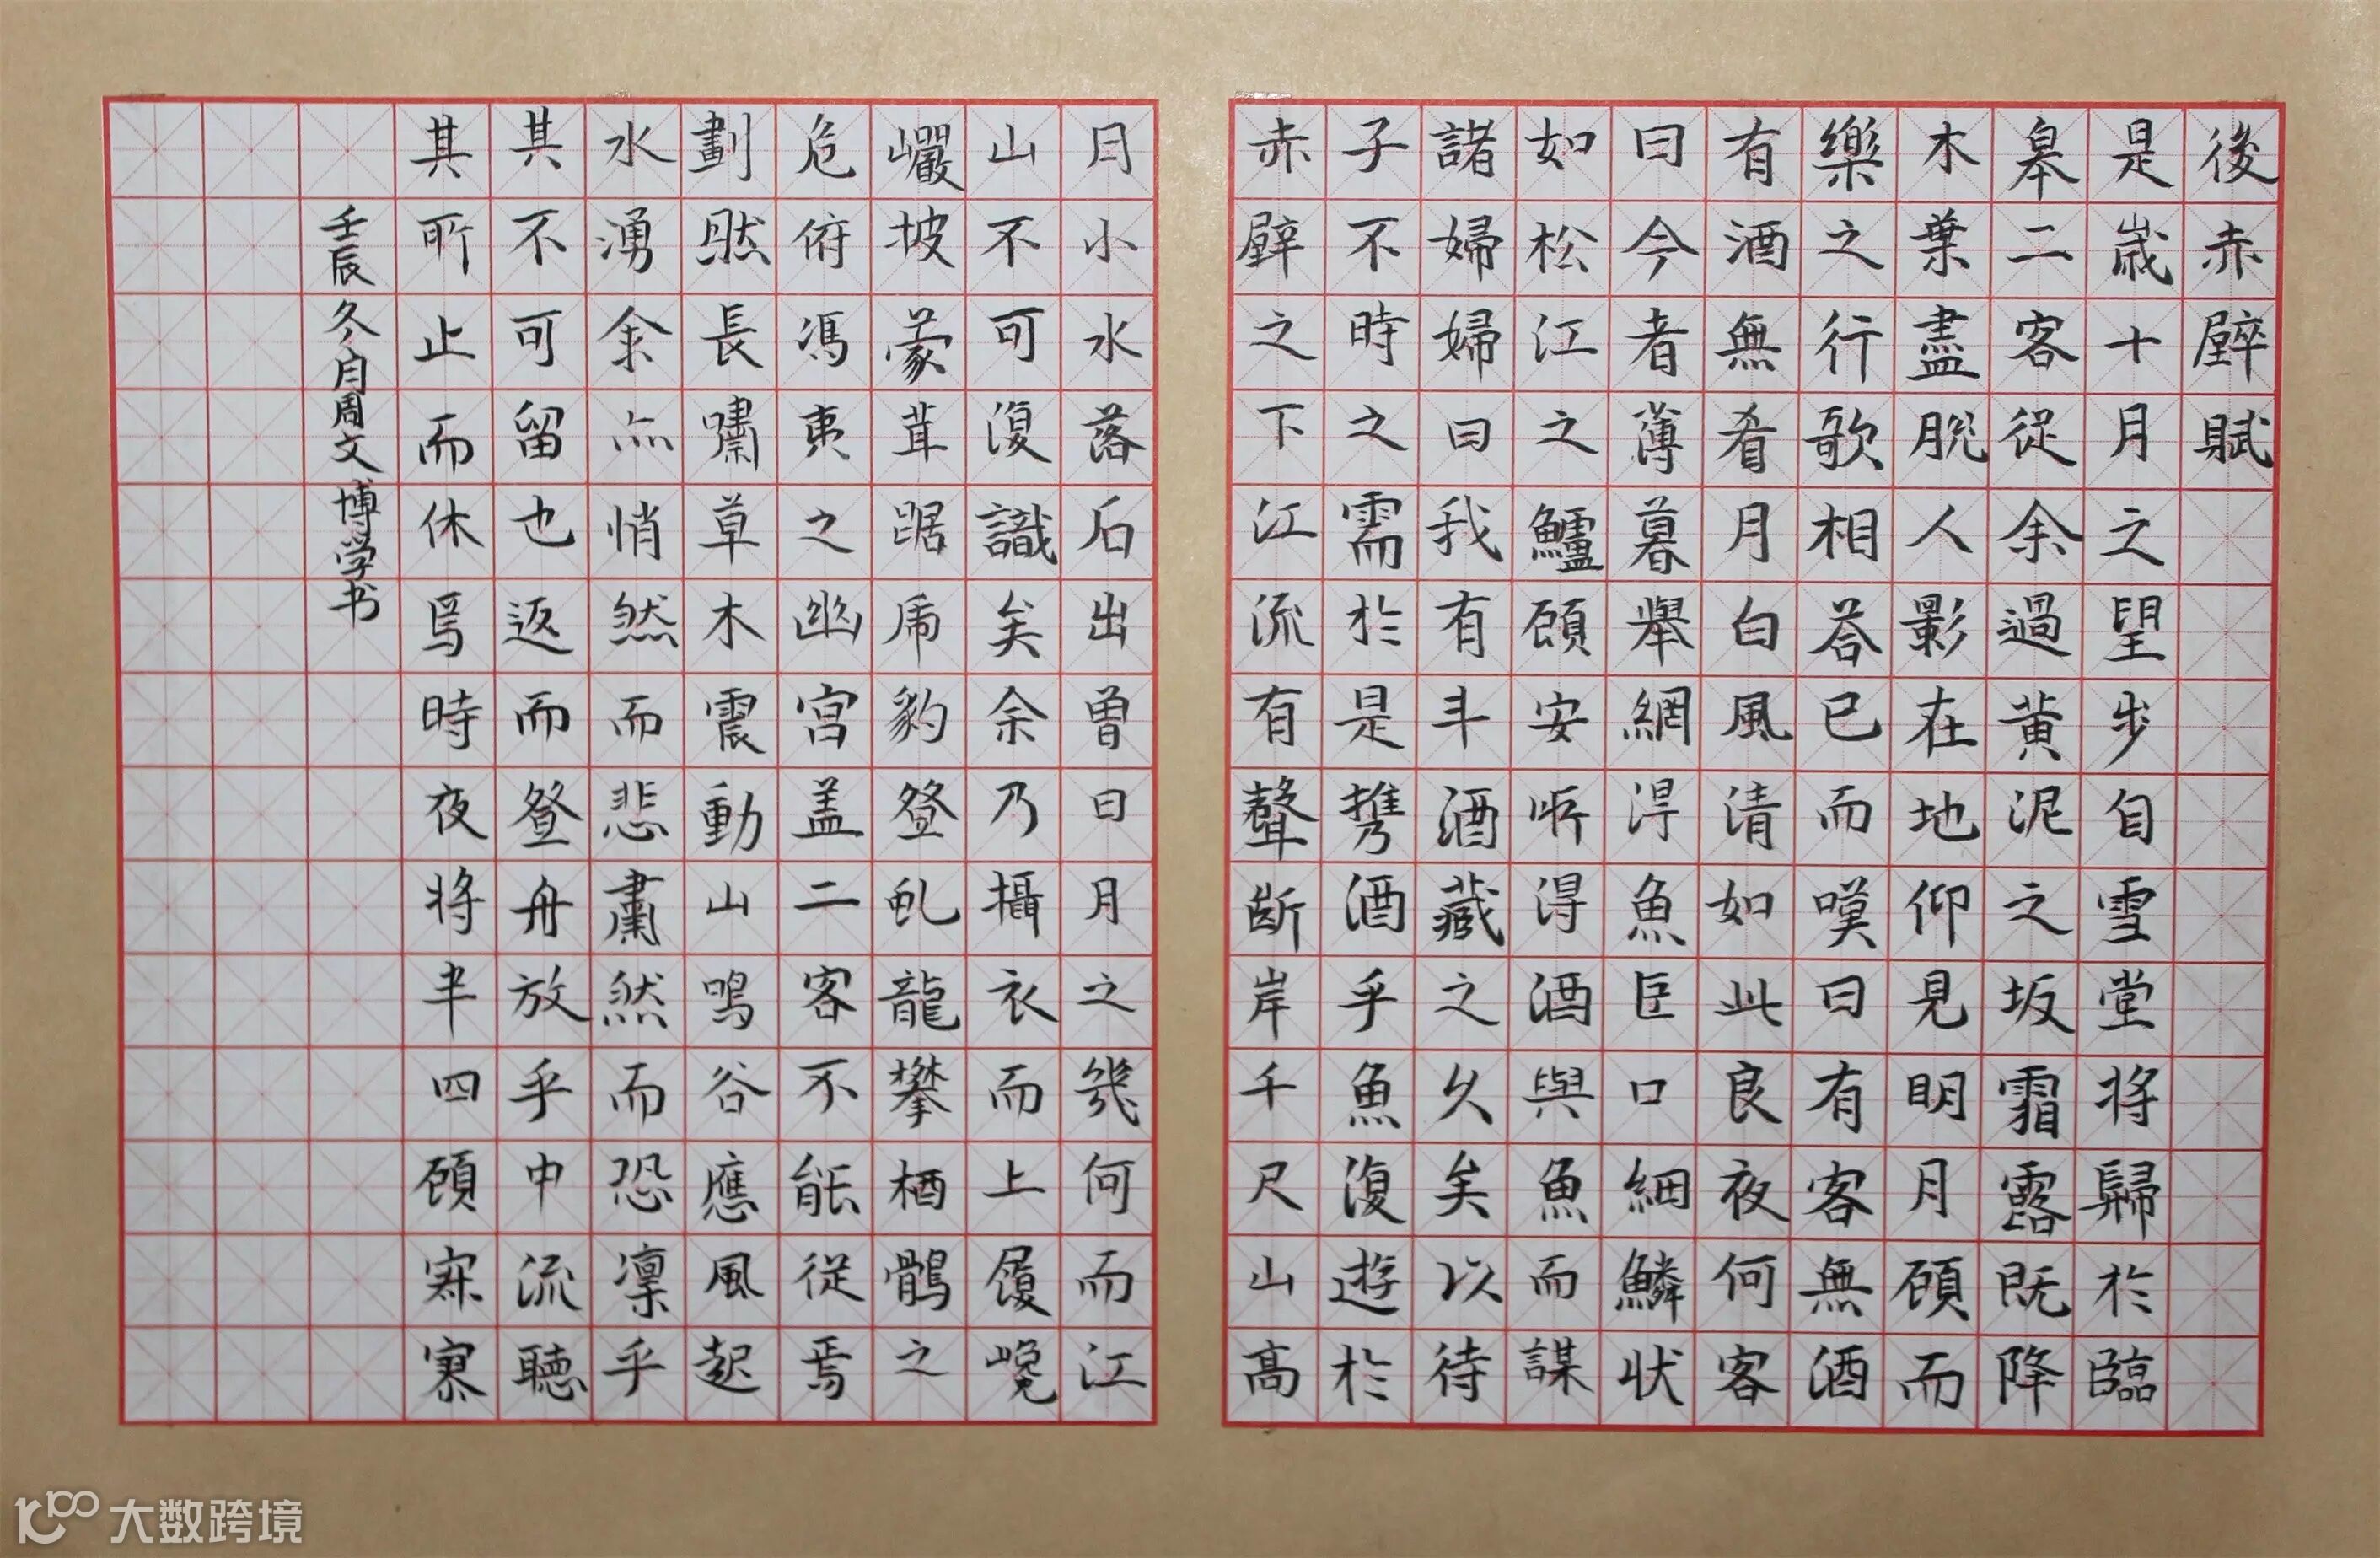 後赤壁賦
是歲十月之望步自雪堂將歸於臨
皋二客從余過黃泥之坂霜露既降
木葉盡脫人影在地仰見明月顧而
樂之行歌相答已而嘆曰有客無酒
有酒無肴月白風清如此良夜何客
曰今者薄暮舉網得魚巨口細鱗狀
如松江之鱸顧安所得酒與魚而謀
諸婦婦曰我有斗酒藏之久矣以待
子不時之需於是攜酒乎魚復遊於
赤壁之下江流有聲斷岸千尺山高
月小水落石出曾日月之幾何而江
山不可復識矣余乃攝衣而上履巉
巖披蒙茸踞虎豹登虬龍攀栖鶻之
危俯馮夷之幽宮盖二客不能從焉
劃然長嘯草木震動山鳴谷應風起
水湧余亦悄然而悲肅然而恐凜乎
其不可留也返而登舟放乎中流聽
其所止而休焉時夜將半四顧寂寥
壬辰冬月周文博学书
大数跨境